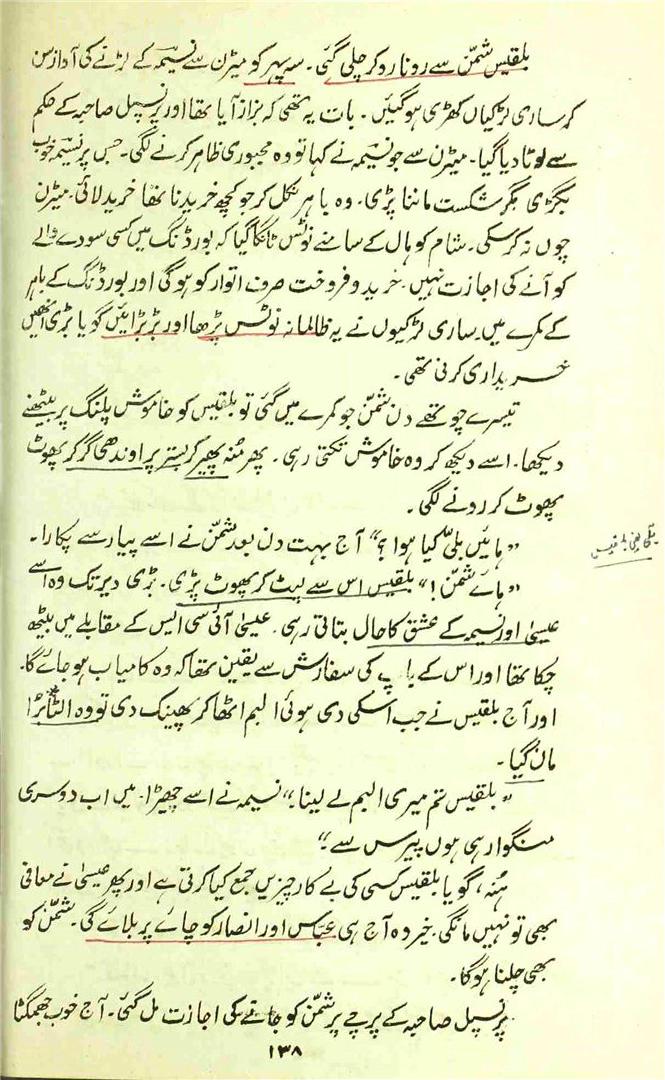 بلقیس شمن سے رونا رو کر چلی گئی۔ سہ پہر کو میٹرن سے نسیمہ کے لڑنے کی آواز سن
کر ساری لڑکیاں کھڑی ہو گئیں۔ بات یہ تھی کہ بزاز آیا تھا اور پرنسپل صاحبہ کے حکم
سے لوٹا دیا گیا۔ میٹرن سے جو نسیمہ نے کہا تو وہ مجبوری ظاہر کرنے لگی۔ جس پر نسیمہ خوب
بگڑی مگر شکست ماننا پڑی۔ وہ باہر نکل کر جو کچھ خریدنا تھا خرید لائی۔ میٹرن
چوں نہ کر سکی۔ شام کو ہال کے سامنے نوٹس ٹانگا گیا کہ بورڈنگ میں کسی سودے والے
کو آنے کی اجازت نہیں۔ خرید و فروخت صرف اتوار کو ہوگی اور بورڈنگ کے باہر
کے کمرے میں۔ ساری لڑکیوں نے یہ ظالمانہ نوٹس پڑھا اور بڑبڑائیں گویا بڑی انھیں
خریداری کرنی تھی۔
تیسرے چوتھے دن شمن جو کمرے میں گئی تو بلقیس کو خاموش پلنگ پر بیٹھے
دیکھا۔ اسے دیکھ کر وہ خاموش تکتی رہی۔ پھر منہ پھیر کر بستر پر اوندھی گر کر پھوٹ
پھوٹ کر رونے لگی۔
”ہائیں بلی کیا ہوا؟“ آج بہت دن بعد شمن نے اسے پیار سے پکارا۔
”ہائے شمن!“ بلقیس اس سے لپٹ کر پھوٹ پڑی۔ بڑی دیر تک وہ اسے
عیسیٰ اور نسیمہ کے عشق کا حال بتاتی رہی۔ عیسیٰ آئی سی ایس کے مقابلے میں بیٹھ
چکا تھا اور اس کے باپ کی سفارش سے یقین تھا کہ وہ کامیاب ہو جائے گا۔
اور آج بلقیس نے جب اسکی دی ہوئی البم اٹھا کر پھینک دی تو وہ الٹا بُرا
مان گیا۔
”بلقیس تم میری البم لے لینا۔“ نسیمہ نے اسے چھیڑا۔ میں اب دوسری
منگوا رہی ہوں پیرس سے۔“
ہُنہ، گویا بلقیس کسی کی بے کار چیزیں جمع کیا کرتی ہے اور پھر عیسیٰ نے معافی
بھی تو نہیں مانگی۔ خیر وہ آج ہی عباس اور انصار کو چائے پر بلائے گی۔ شمن کو
بھی چلنا ہوگا۔
پرنسپل صاحبہ کے پرچے پر شمن کو جانے کی اجازت مل گئی۔ آج خوب جمگھٹا
۱۳۸